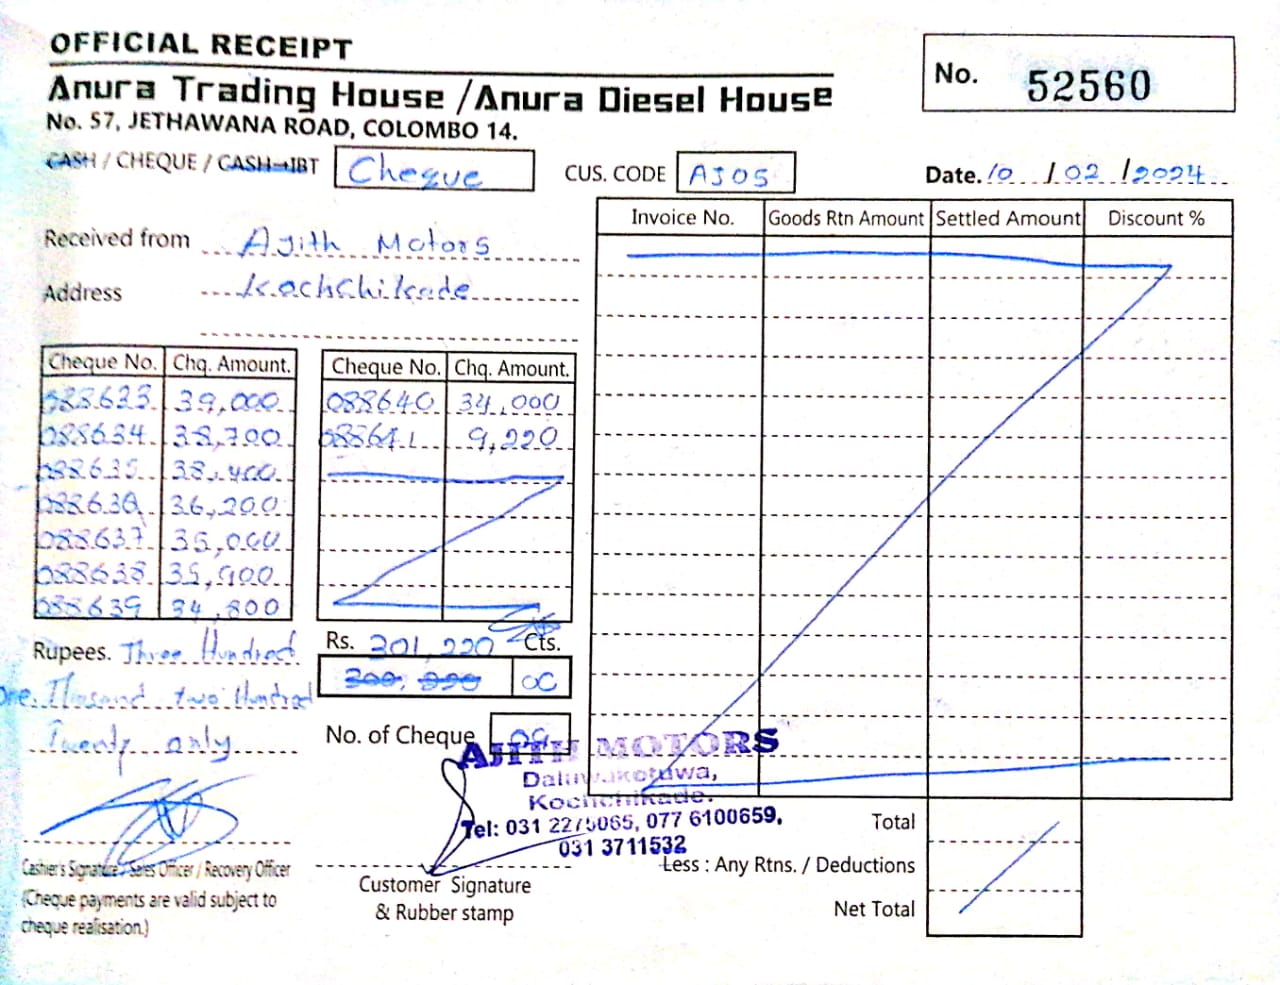 OFFICIAL RECEIPT
Anura Trading House /Anura Diesel House
No. 57, JETHAWANA ROAD, COLOMBO 14.
No. 52560
CASH / CHEQUE / CASH-IBT Cheque
CUS. CODE AJ05
Date. 10 / 02 / 2024
Received from Ajith Motors
Address Kochchikade
Invoice No. Goods Rtn Amount Settled Amount Discount %
Cheque No. Chq. Amount. Cheque No. Chq. Amount.
088633 39,000 088640 34,000
088634 38,700 088641 9,220
088635 38,400
088636 36,200
088637 35,000
088638 35,900
088639 34,800
Rupees. Three Hundred
One Thosand two Hundred
Twenty only
Rs. 301,220 Cts.
300, 220 00
No. of Cheque 09
AJITH MOTORS
Daluwakotuwa,
Kochchikade.
Tel: 031 2275065, 077 6100659,
031 3711532
Cashier's Signature / Sales Officer / Recovery Officer
(Cheque payments are valid subject to
cheque realisation.)
Customer Signature
& Rubber stamp
Total
Less : Any Rtns. / Deductions
Net Total